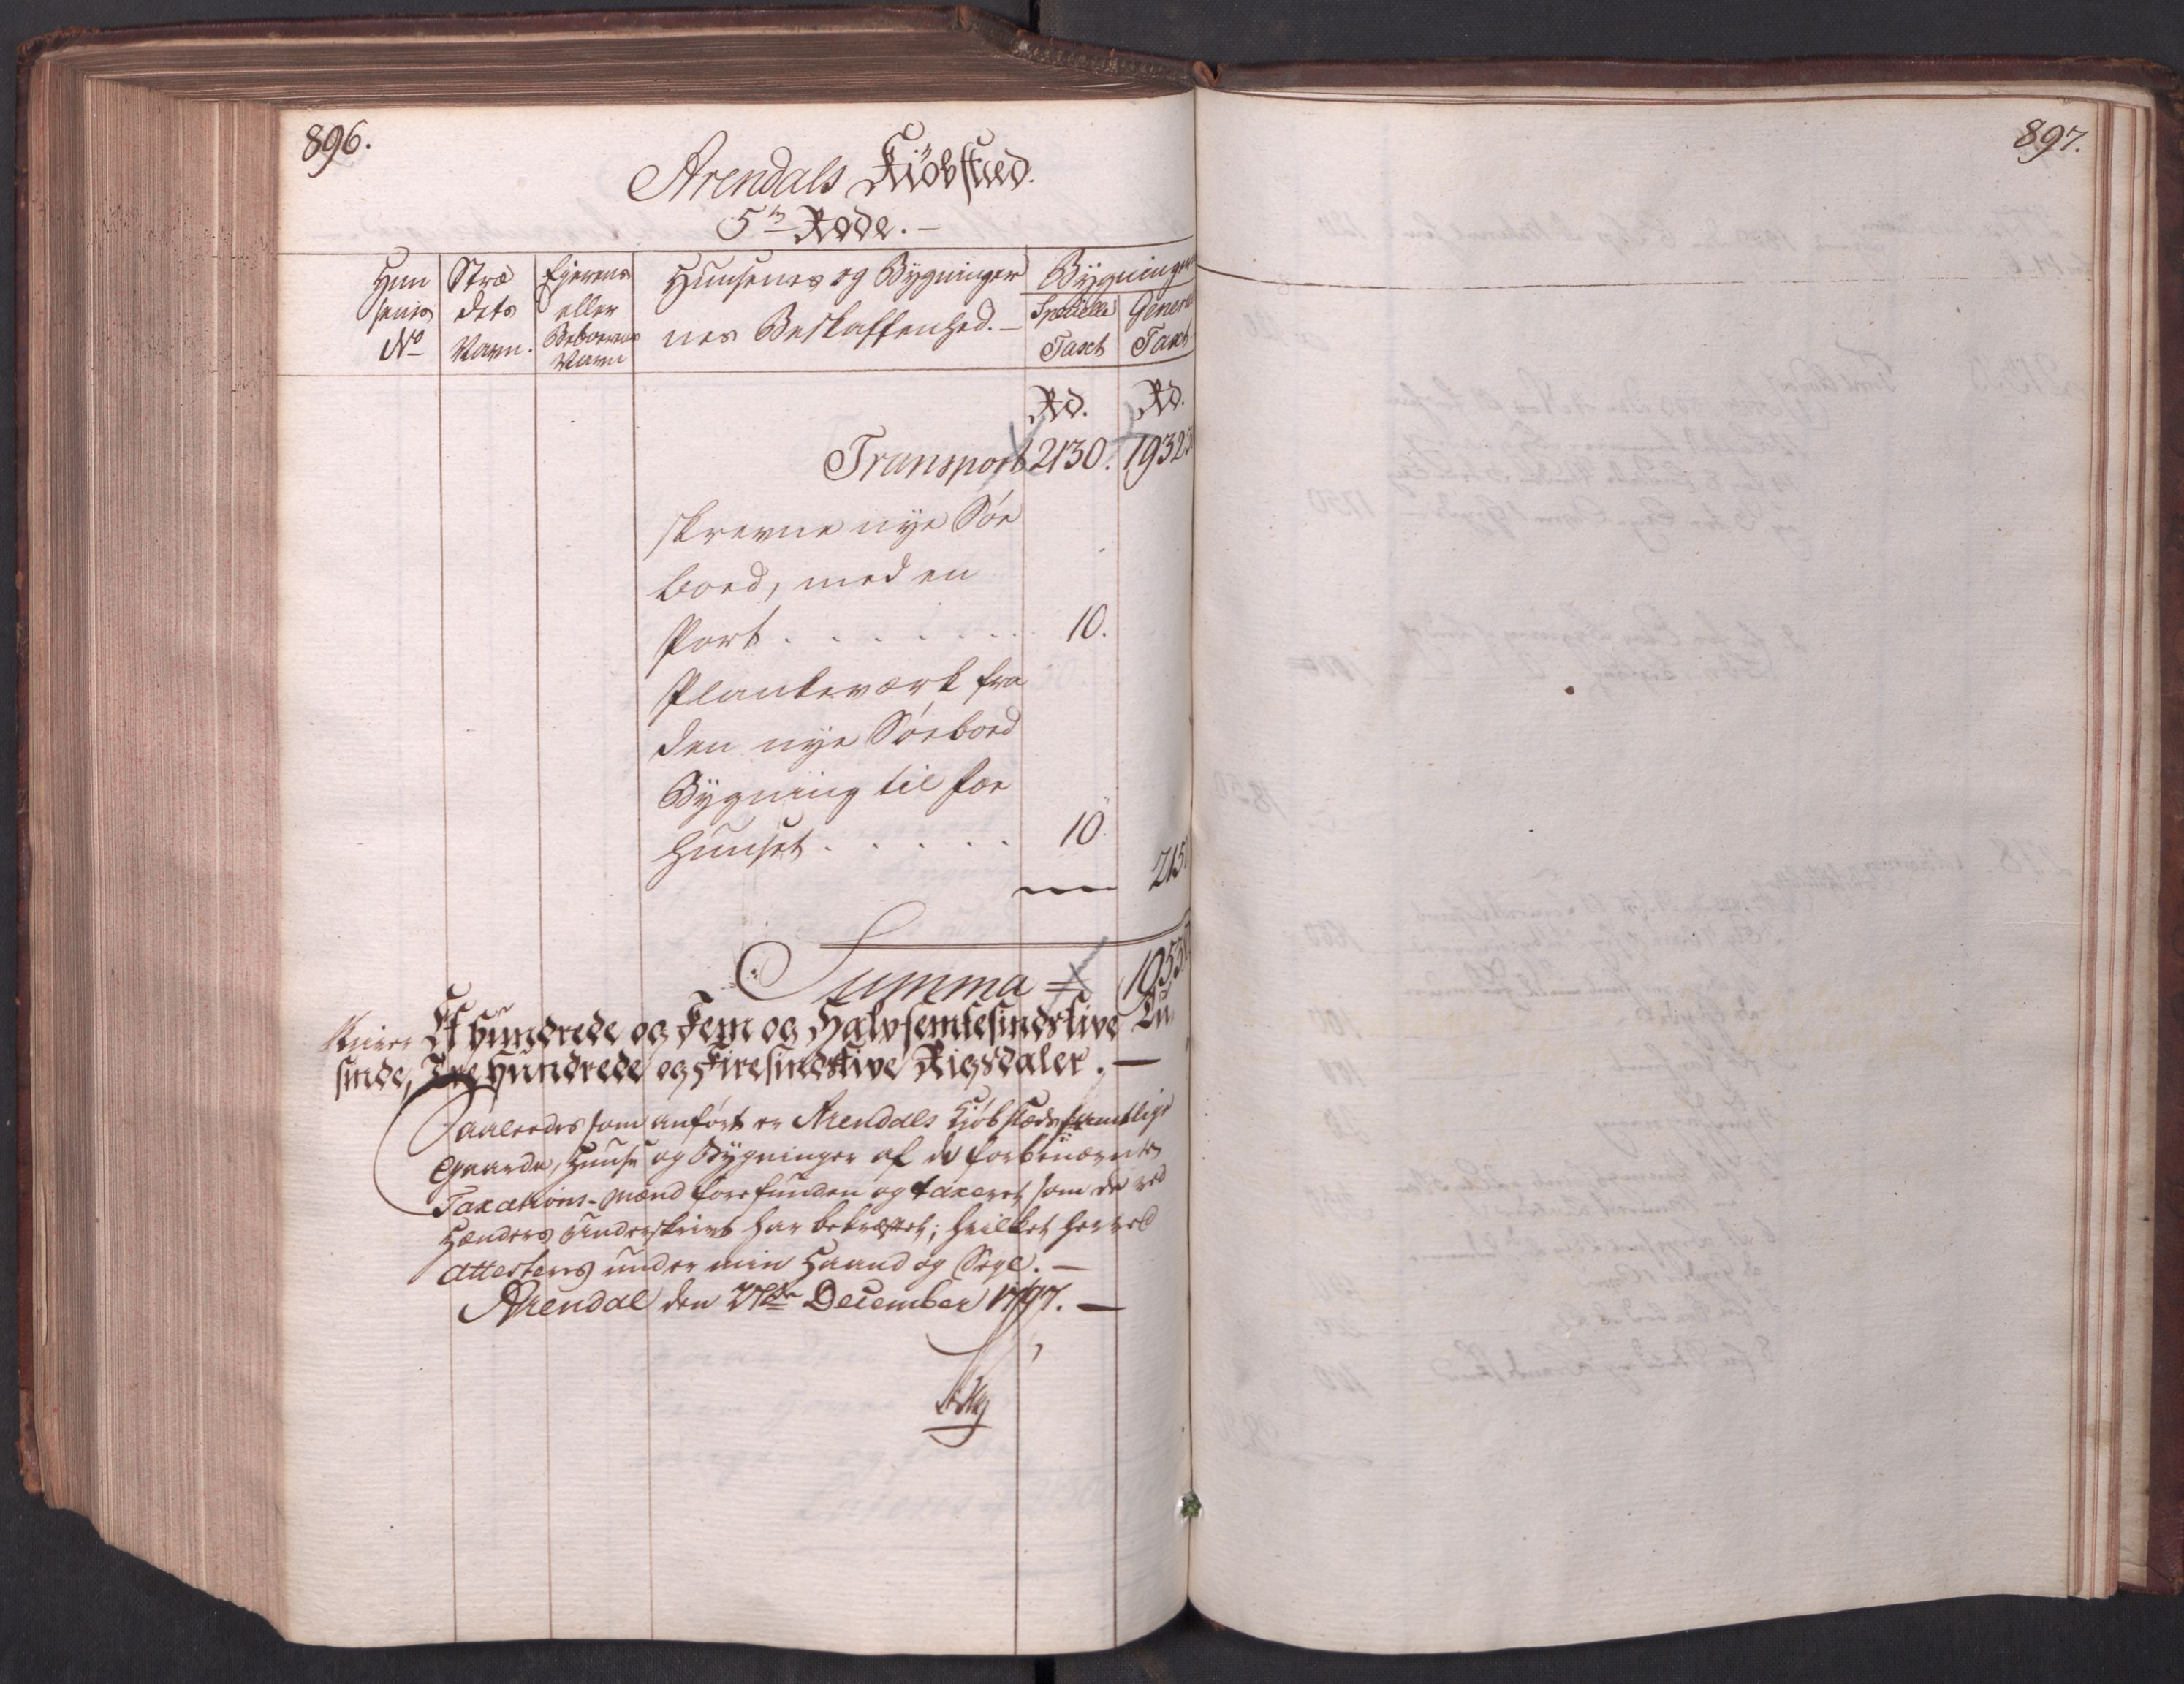 896.
Arendals Kiöbstæd.
5te Rode. -
Huu
senes
No
Stræ
dets
Navn.
Ejerens
eller
Beboerens
Navn
Huusenes og Bÿgninger
nes Beskaffenhed. -
Bÿgninger
Specielle
Taxt
General
Taxt
Rd. Rd.
Transport 2130. 1932
skrevne nÿe Söe
boed, med en
Port . . . . . . . . 10.
Plankeværk fra
den nÿe Söeboed
Bÿgning til for
Huuset . . . . . 10.
215
Summa 1955
Et hundrede og Fem og Halvfemtesindstive Tu,
sinde, Tre Hundrede og Firesindstive Rigsdaler. -
Saaledes som anført er Arendals Kiöbstæds samtlige
Gaarde, Huuse og Bÿgninger af de forbenævnte
Taxations-Mænd forefunden og taxeret som de ved
Hænders Underskrivt har bekræftet; hvilket herved
attesteres under min Haand og Segl. -
Arendal den 27de December 1797. -
897.